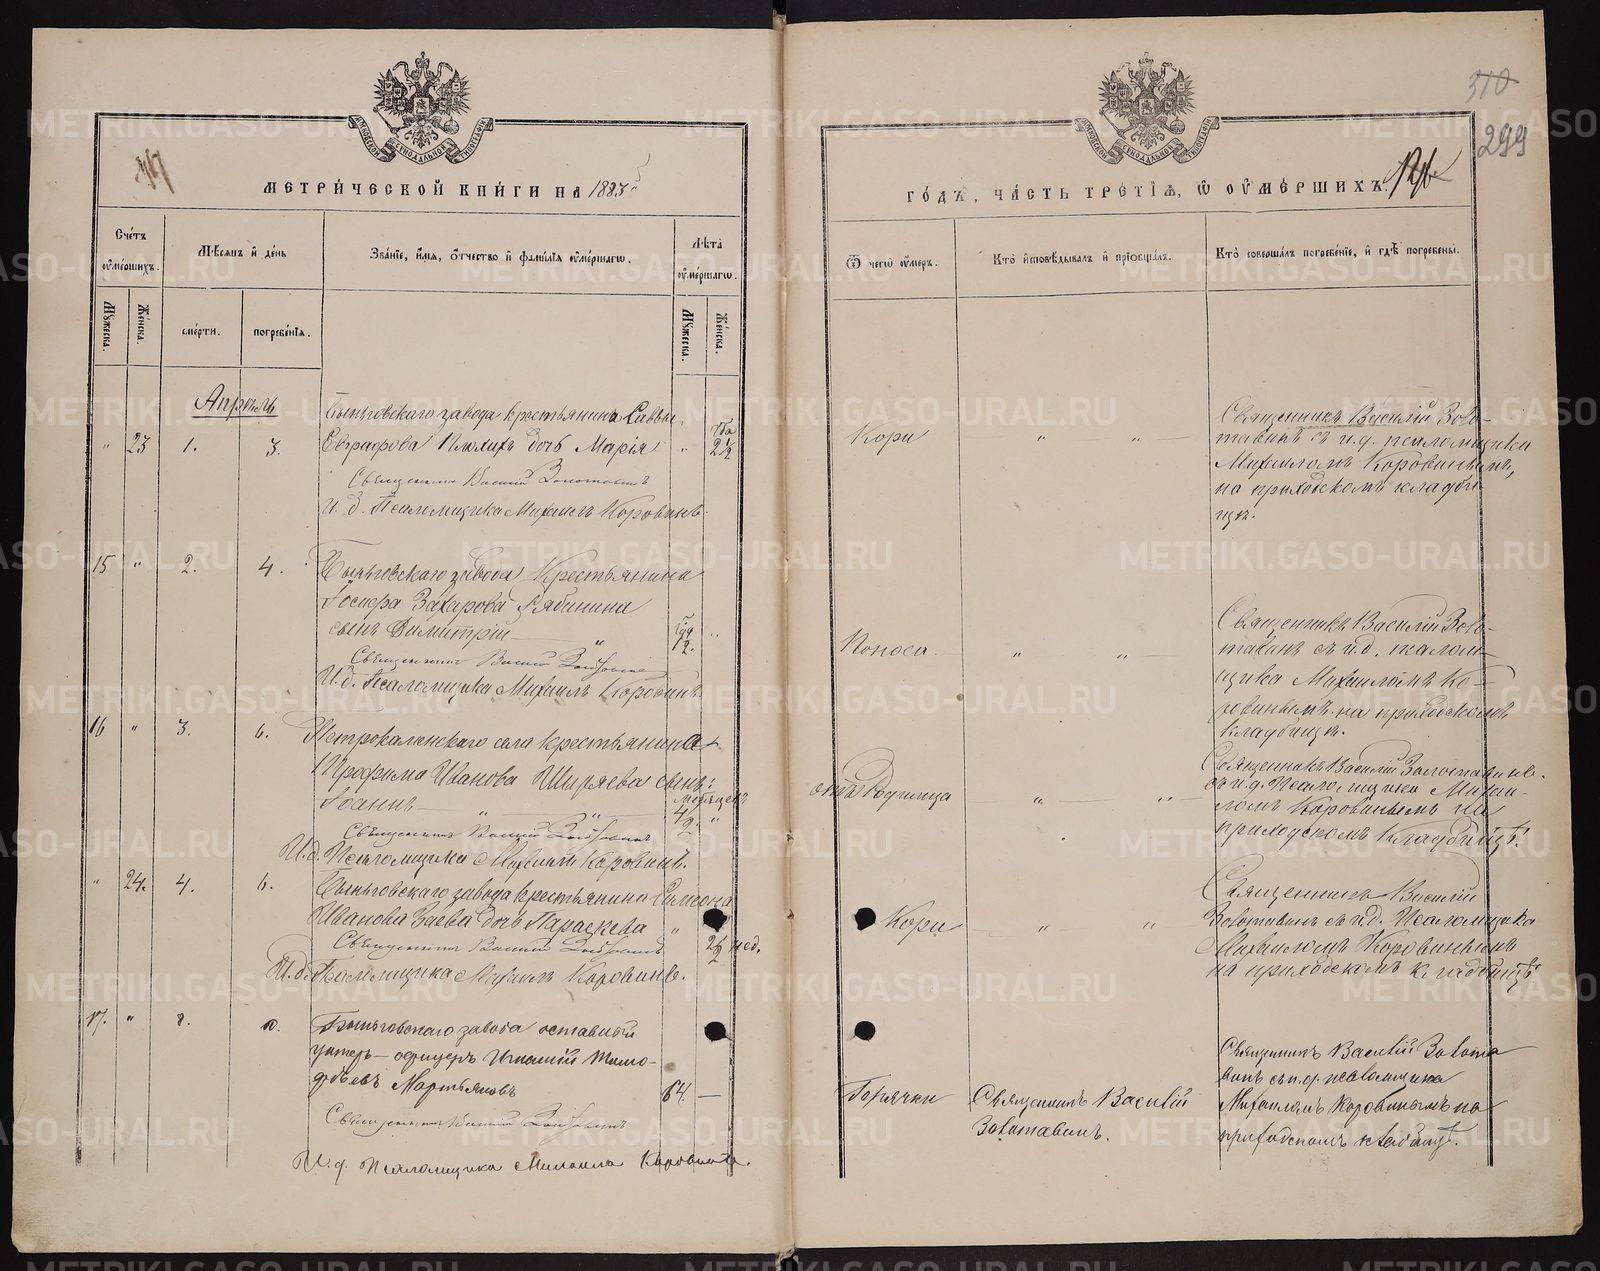 МЕТРИЧЕСКОЙ КНИГИ НА 1885
Счетъ умершихъ.
Мѣсяцъ и день
Званіе, имя, отчество и фамилія умершаго.
Лѣта умершаго.
Мужеска.
Женска.
смерти.
погребенія.
Мужеска.
Женска.
Апрѣль
Быньговскаго завода крестьянина Саввы
" 23 1. 3. Евграфова дочь Марія " 2½
Священникъ Василій Золотавинъ
И. д. Псаломщика Михаилъ Коровинъ
15 " 2. 4. Быньговскаго завода крестьянина
Іосифа Захарова Рябинина
сынъ Димитрій " ½. "
Священникъ Василій Золотавинъ
И. д. Псаломщика Михаилъ Коровинъ
16 " 3. 6. Петрокаменскаго села крестьянина
Трофима Иванова Ширяева сынъ
Іоаннъ " " мѣсяцевъ "
Священникъ Василій Золотавинъ
И. д. Псаломщика Михаилъ Коровинъ.
" 24. 4. 6. Быньговскаго завода крестьянина Симеона
Иванова Заева дочь Параскева " 2½ нед.
Священникъ Василій Золотавинъ
И. д. Псаломщика Михаилъ Коровинъ.
17. " 8. 10. Быньговскаго завода отставный
унтеръ-офицеръ Игнатій Тимо-
феевъ Мартьяновъ 64. —
Священникъ Василій Золотавинъ
И. д. Псаломщика Михаилъ Коровинъ.
310
299
ГОДЪ, ЧАСТЬ ТРЕТІЯ, О УМЕРШИХЪ.
Отъ чего умеръ.
Кто исповѣдывалъ и пріобщалъ.
Кто совершалъ погребеніе, и гдѣ погребены.
Кори " "
Священникъ Василій Золо-
тавинъ съ и. д. псаломщика
Михаиломъ Коровинымъ,
на приходскомъ кладби-
щѣ.
Поноса " "
Священникъ Василій Золо-
тавинъ съ и. д. псалом-
щика Михаиломъ Ко-
ровинымъ на приходскомъ
кладбищѣ.
отъ Родимца " "
Священникъ Василій Золотавинъ
съ и. д. Псаломщика Михаи-
ломъ Коровинымъ на
приходскомъ кладбищѣ.
Кори " "
Священникъ Василій
Золотавинъ съ и. д. Псаломщика
Михаиломъ Коровинымъ
на приходскомъ кладбищѣ
Горячки
Священникъ Василій
Золотавинъ.
Священникъ Василій Золота
винъ съ и. д. псаломщика
Михаиломъ Коровинымъ на
приходскомъ кладбищѣ.
METRIKI.GASO-URAL.RU